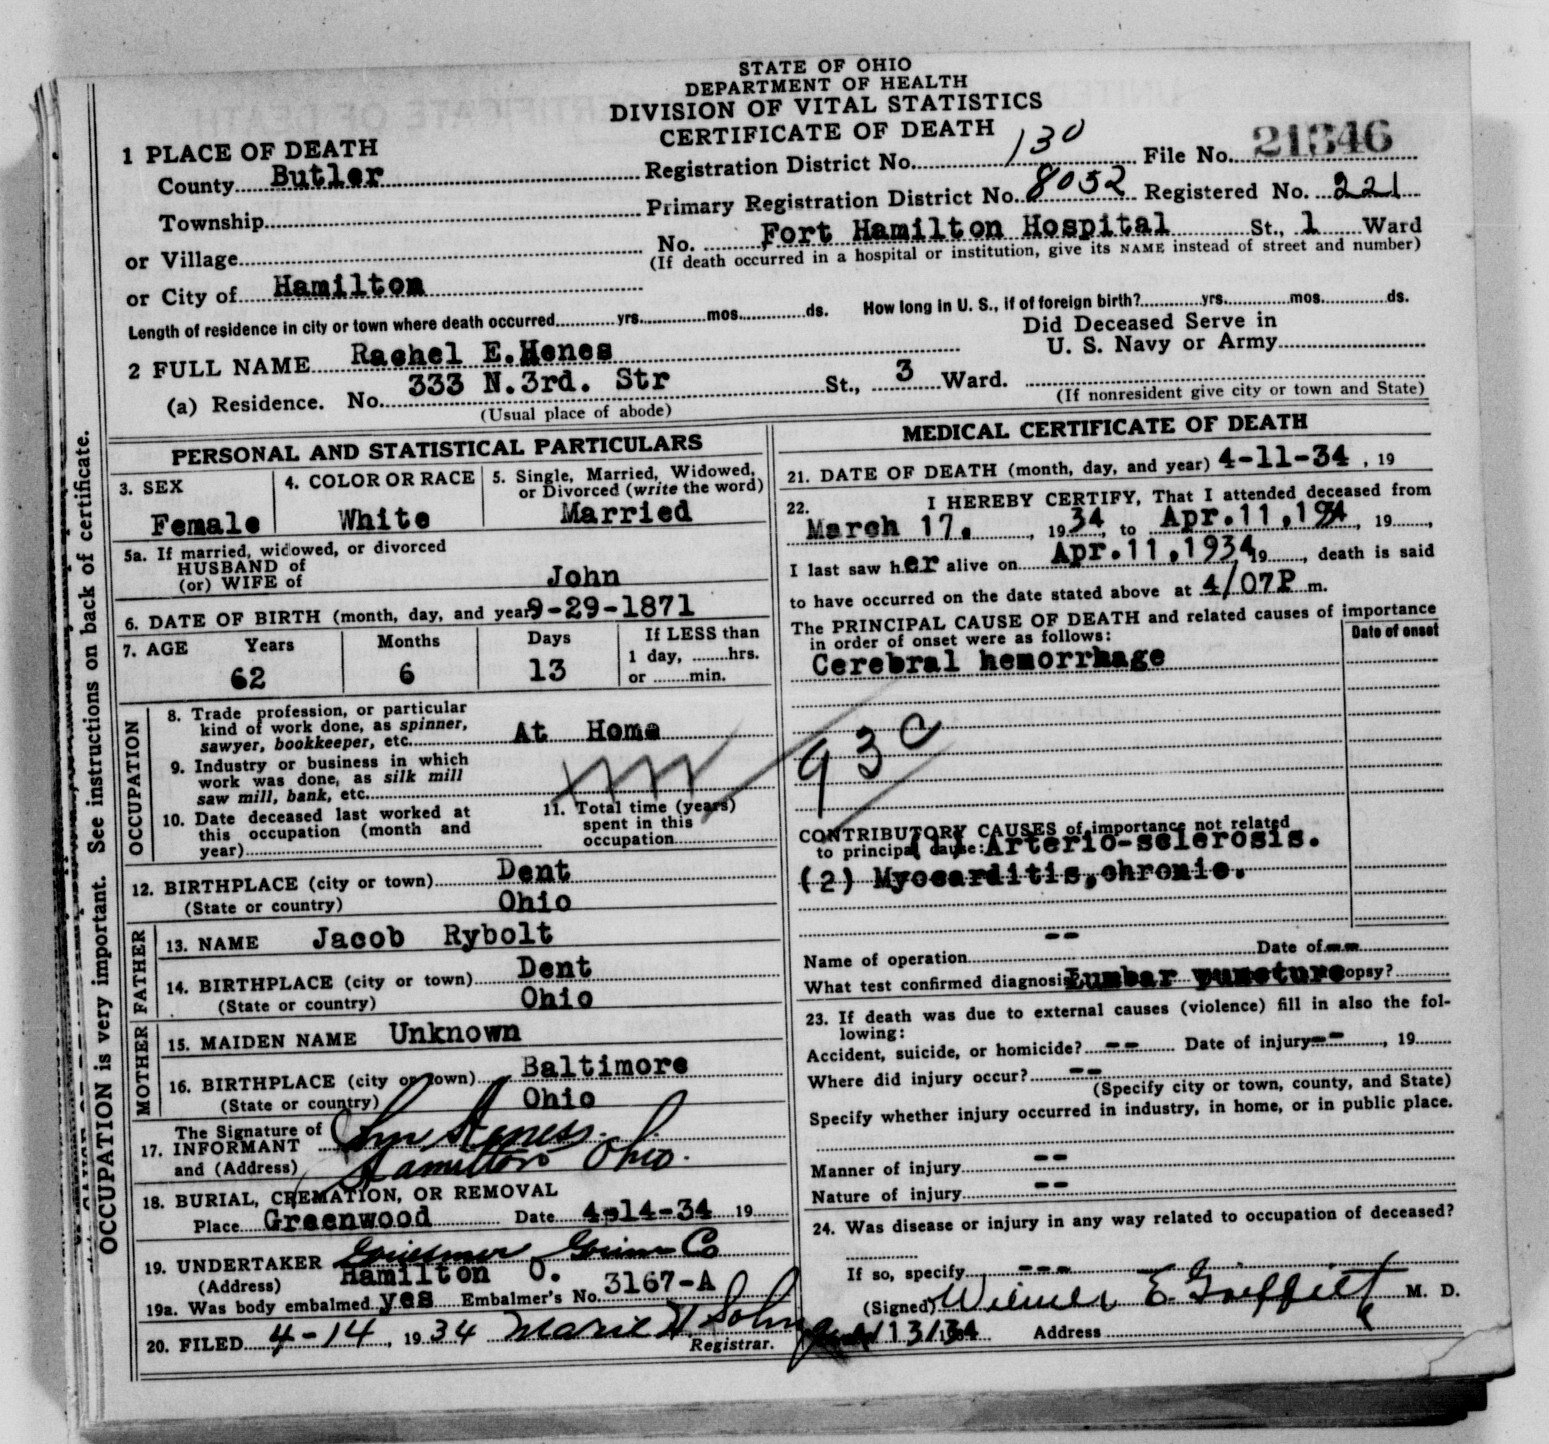 STATE OF OHIO
DEPARTMENT OF HEALTH
DIVISION OF VITAL STATISTICS
CERTIFICATE OF DEATH
1 PLACE OF DEATH
County Butler
Registration District No. 130 File No. 21346
Township
Primary Registration District No. 8052 Registered No. 221
or Village
No. Fort Hamilton Hospital St., 1 Ward
(If death occurred in a hospital or institution, give its NAME instead of street and number)
or City of Hamilton
Length of residence in city or town where death occurred yrs. mos. ds. How long in U. S., if of foreign birth? yrs. mos. ds.
Did Deceased Serve in
U. S. Navy or Army
2 FULL NAME Rachel E.Henes
(a) Residence. No. 333 N.3rd. Str St., 3 Ward.
(Usual place of abode)
(If nonresident give city or town and State)
OCCUPATION is very important. See instructions on back of certificate.
PERSONAL AND STATISTICAL PARTICULARS
3. SEX
Female
4. COLOR OR RACE
White
5. Single, Married, Widowed,
or Divorced (write the word)
Married
5a. If married, widowed, or divorced
HUSBAND of
(or) WIFE of John
6. DATE OF BIRTH (month, day, and year 9-29-1871
7. AGE Years Months Days If LESS than
1 day, hrs.
or min.
62 6 13
OCCUPATION
8. Trade profession, or particular
kind of work done, as spinner,
sawyer, bookkeeper, etc. At Home
9. Industry or business in which
work was done, as silk mill
saw mill, bank, etc.
10. Date deceased last worked at
this occupation (month and
year)
11. Total time (years)
spent in this
occupation
12. BIRTHPLACE (city or town) Dent
(State or country) Ohio
FATHER
13. NAME Jacob Rybolt
14. BIRTHPLACE (city or town) Dent
(State or country) Ohio
MOTHER
15. MAIDEN NAME Unknown
16. BIRTHPLACE (city or town) Baltimore
(State or country) Ohio
The Signature of
17. INFORMANT
and (Address) Hamilton Ohio.
18. BURIAL, CREMATION, OR REMOVAL
Place Greenwood Date 4-14-34 19
19. UNDERTAKER Co
(Address) Hamilton O.
19a. Was body embalmed yes Embalmer's No. 3167-A
20. FILED 4-14, 1934 Marie H
Registrar.
MEDICAL CERTIFICATE OF DEATH
21. DATE OF DEATH (month, day, and year) 4-11-34, 19
22. I HEREBY CERTIFY, That I attended deceased from
March 17., 1934, to Apr.11,1934, 19,
I last saw her alive on Apr.11,1934 19, death is said
to have occurred on the date stated above at 4/07P m.
The PRINCIPAL CAUSE OF DEATH and related causes of importance
in order of onset were as follows:
Date of onset
Cerebral hemorrhage
93c
CONTRIBUTORY CAUSES of importance not related
to principal cause: (1) Arterio-sclerosis.
(2) Myocarditis,chronic.
--
Name of operation Date of --
What test confirmed diagnosis Lumbar puncture opsy?
23. If death was due to external causes (violence) fill in also the fol-
lowing:
Accident, suicide, or homicide? -- Date of injury --, 19
Where did injury occur? --
(Specify city or town, county, and State)
Specify whether injury occurred in industry, in home, or in public place.
Manner of injury --
Nature of injury --
24. Was disease or injury in any way related to occupation of deceased?
If so, specify ---
(Signed) E. M. D.
13/34 Address